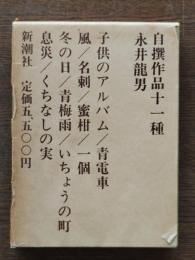 自撰作品十一種
永井龍男
子供のアルバム/青電車
風/名刺/蜜柑/一個
冬の日/青梅雨/いちょうの町
息災/くちなしの実
新潮社 定価五、五〇〇円